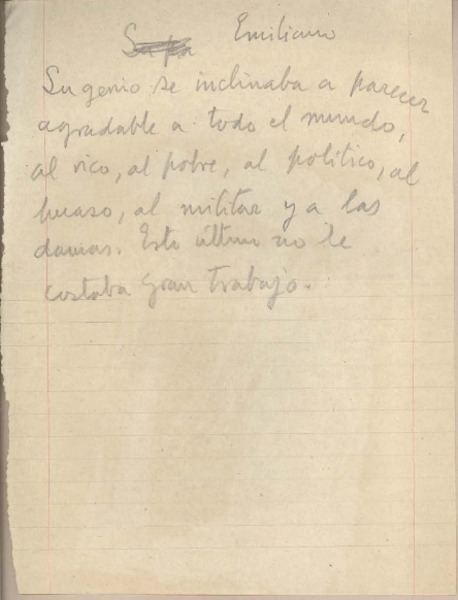 Emiliano
Su genio se inclinaba a parecer
agradable a todo el mundo,
al rico, al pobre, al político, al
huaso, al militar y a las
damas. Esto último no le
costaba gran trabajo.